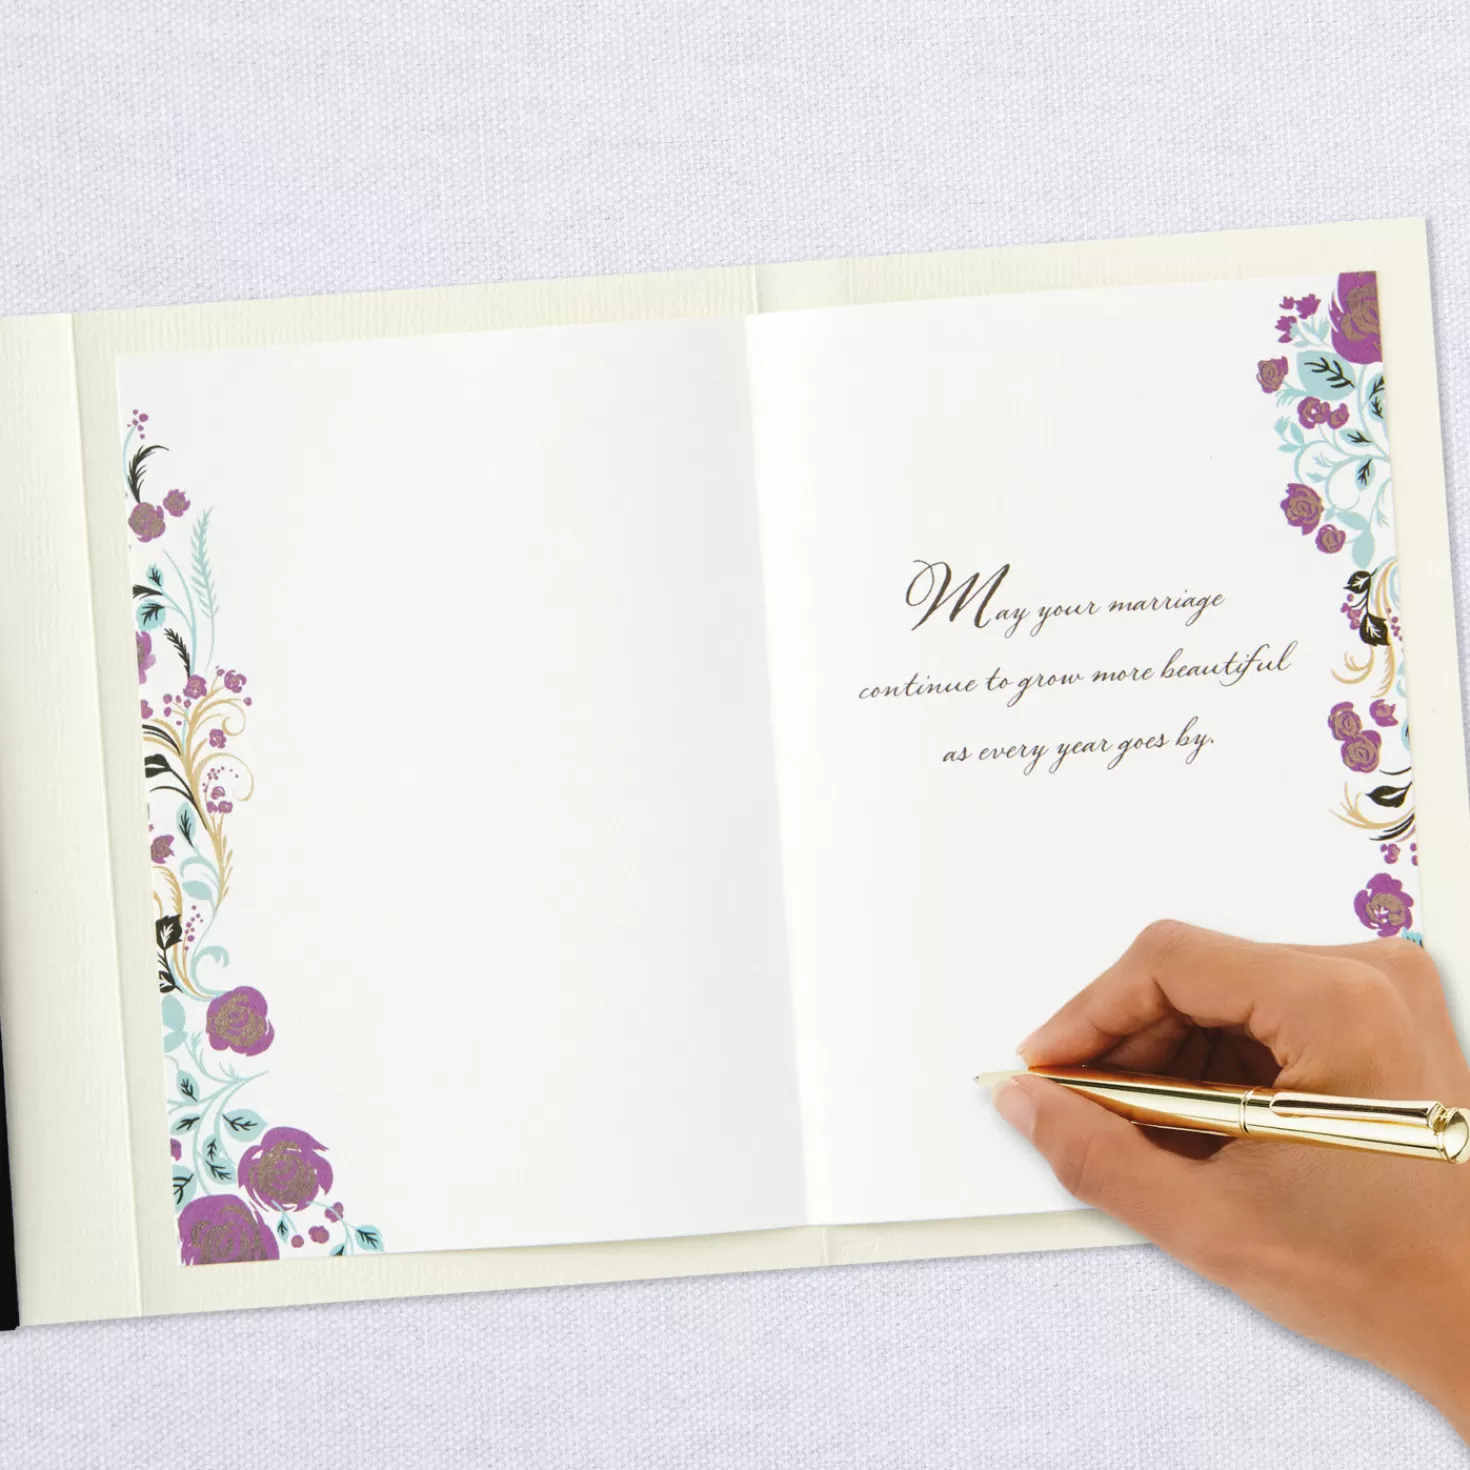 May your marriage
continue to grow more beautiful
as every year goes by.